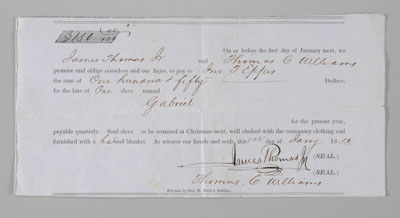 $150 00/100
On or before the first day of January next, we
James Thomas Jr and Thomas C Williams
promise and oblige ourselves and our heirs, to pay to Jno T Eppes
the sum of One hundred & fifty Dollars,
for the hire of One slave named
Gabriel
for the present year,
payable quarterly. Said slave to be returned at Christmas next, well clothed with the customary clothing and
furnished with a hat and blanket. As witness our hands and seals, this 1st day of Jany 18
James Thomas Jr (SEAL.)
Thomas C. Williams (SEAL.)
For sale by